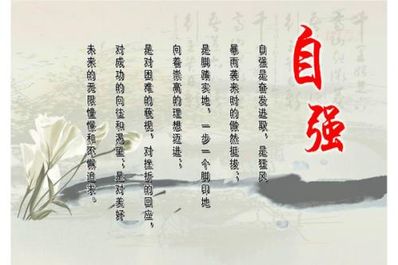 自强
自强是奋发进取，是狂风
暴雨袭来时的傲然挺拔；
是脚踏实地，一步一个脚印地
向着崇高的理想迈进；
是对困难的藐视，对挫折的回应，
对成功的向往和渴望；是对美好
未来的无限憧憬和不懈追求。